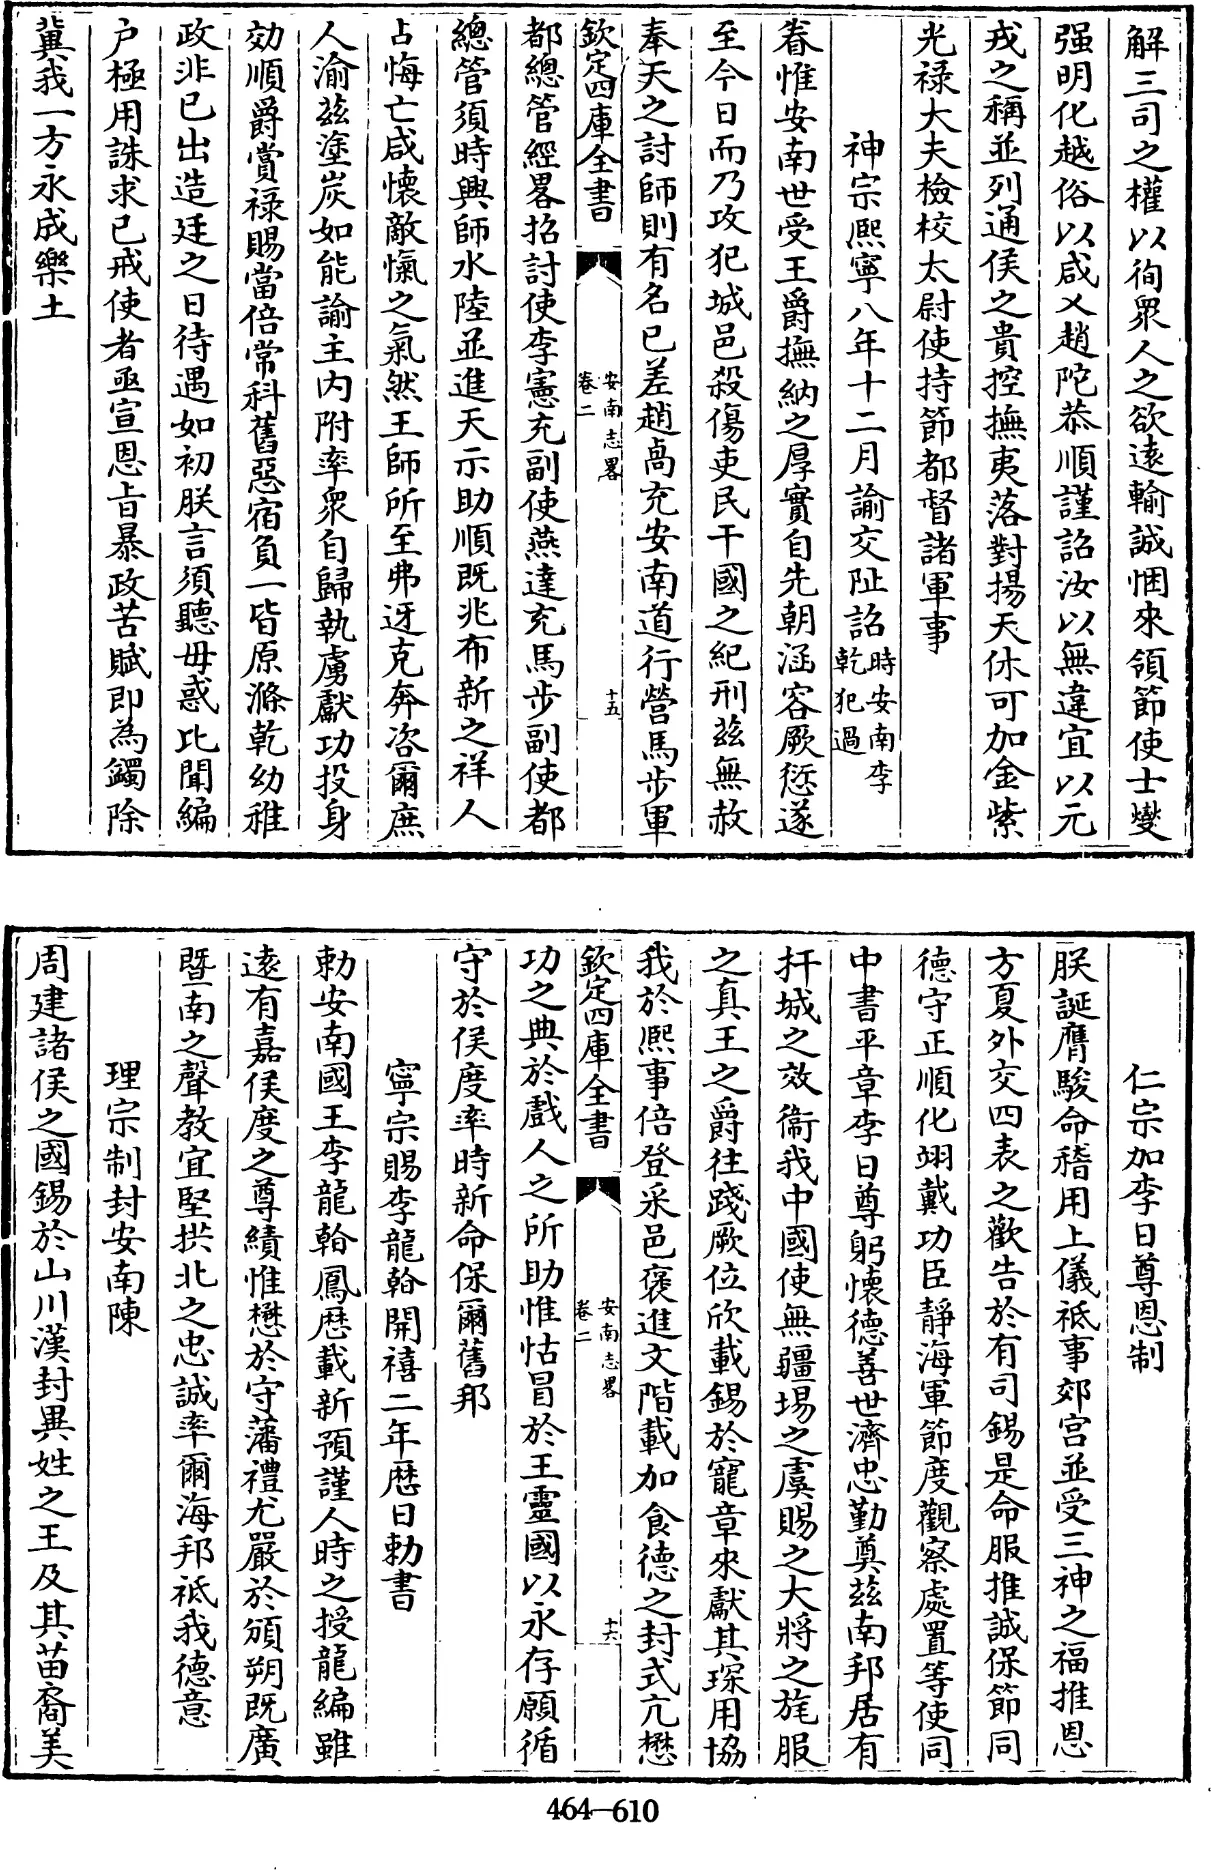 解三司之權以徇衆人之欲遠輸誠悃來領節使士燮
强明化越俗以咸乂趙陀恭順謹詔汝以無違宜以元
戎之稱並列通侯之貴控撫夷落對揚天休可加金紫
光禄大夫檢校太尉使持節都督諸軍事
神宗熙寧八年十二月諭交阯詔時安南李乾犯過
眷惟安南世受王爵撫納之厚實自先朝涵容厥愆遂
至今日而乃攻犯城邑殺傷吏民干國之紀刑茲無赦
奉天之討師則有名已差趙卨充安南道行營馬步軍
欽定四庫全書
安南志畧
卷二
十五
都總管經畧招討使李憲充副使燕達充馬步副使都
總管須時興師水陸並進天示助順既兆布新之祥人
占悔亡咸懷敵愾之氣然王師所至弗迓克奔咨爾庶
人渝兹塗炭如能諭主内附率衆自歸執虜獻功投身
効順爵賞禄賜當倍常科舊惡宿負一皆原滌乾幼稚
政非已出造廷之日待遇如初朕言須聽毋惑比聞編
户極用誅求已戒使者亟宣恩旨暴政苦賦即為蠲除
冀我一方永成樂土
仁宗加李日尊恩制
朕誕膺駿命稽用上儀祗事郊宫並受三神之福推恩
方夏外交四表之歡告於有司錫是命服推誠保節同
德守正順化翊戴功臣靜海軍節度觀察處置等使同
中書平章李日尊躬懷德善世濟忠勤奠兹南邦居有
扞城之效衞我中國使無疆埸之虞賜之大將之旄服
之真王之爵往踐厥位欣載錫於寵章來獻其琛用協
我於熙事倍登采邑褒進文階載加食德之封式亢懋
欽定四庫全書
安南志畧
卷二
十六
功之典於戲人之所助惟怙冒於王靈國以永存願循
守於侯度率時新命保爾舊邦
寧宗賜李龍翰開禧二年歴日勅書
勅安南國王李龍翰鳳歴載新預謹人時之授龍編雖
遠有嘉侯度之尊績惟懋於守藩禮尤嚴於頒朔既廣
暨南之聲教宜堅拱北之忠誠率爾海邦祗我德意
理宗制封安南陳
周建諸侯之國錫於山川漢封異姓之王及其苗裔美
464—610